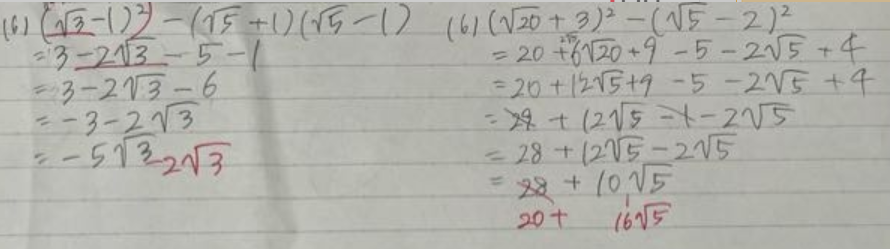 (6) (√3-1)² - (√5+1)(√5-1)
= 3-2√3-5-1
= 3-2√3-6
= -3-2√3
= -5√3
-2√3
(6) (√20+3)² - (√5-2)²
= 20+6√20+9-5-2√5+4
= 20+12√5+9-5-2√5+4
= 29+12√5-1-2√5
= 28+12√5-2√5
= 28+10√5
20+ 16√5